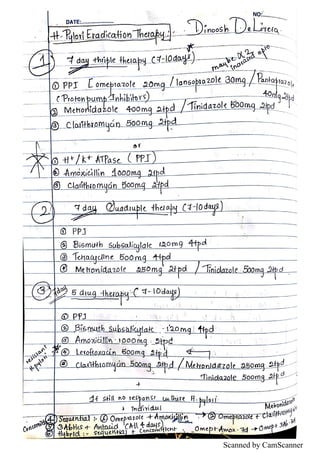 DATE: NO:
H. Pylori Eradication Therapy. Dinoosh De
① 7 day thriple therapy (7-10days)
① PPI [omeprazole 20mg / lansoprazole 30mg / Pantoprazole 40mg
(Proton pump Inhibitors)
② Metronidazole 400mg 2tpd / Tinidazole 500mg 2tpd
③ Clarithromycin 500mg 2tpd
or
① H⁺/K⁺ ATPase (PPI)
② Amoxicillin 1000mg 2tpd
③ Clarithromycin 500mg 2tpd
② 7 day Quadruple therapy (7-10days)
① PPI
② Bismuth Subsalicylate 120mg 4tpd
③ Tetracycline 500mg 4tpd
④ Metronidazole 250mg 2tpd / Tinidazole 500mg 2tpd
③ 7day 5 drug therapy (7-10days)
① PPI
② Bismuth subsalicylate 120mg 4tpd
③ Amoxicillin 1000mg 2tpd
④ Levofloxacin 500mg 2tpd
⑤ Clarithromycin 500mg 2tpd / Metronidazole 250mg 2tpd
Tinidazole 500mg 2tpd
+
If still no response culture H. pylori
+ Individual
④ Sequential :- Omeprazole + Amoxicillin → Omeprazole + Clarithromycin
3ABtks + Antacid (All 4 days)
Hybrid :- sequential + Concomitent
Scanned by CamScanner